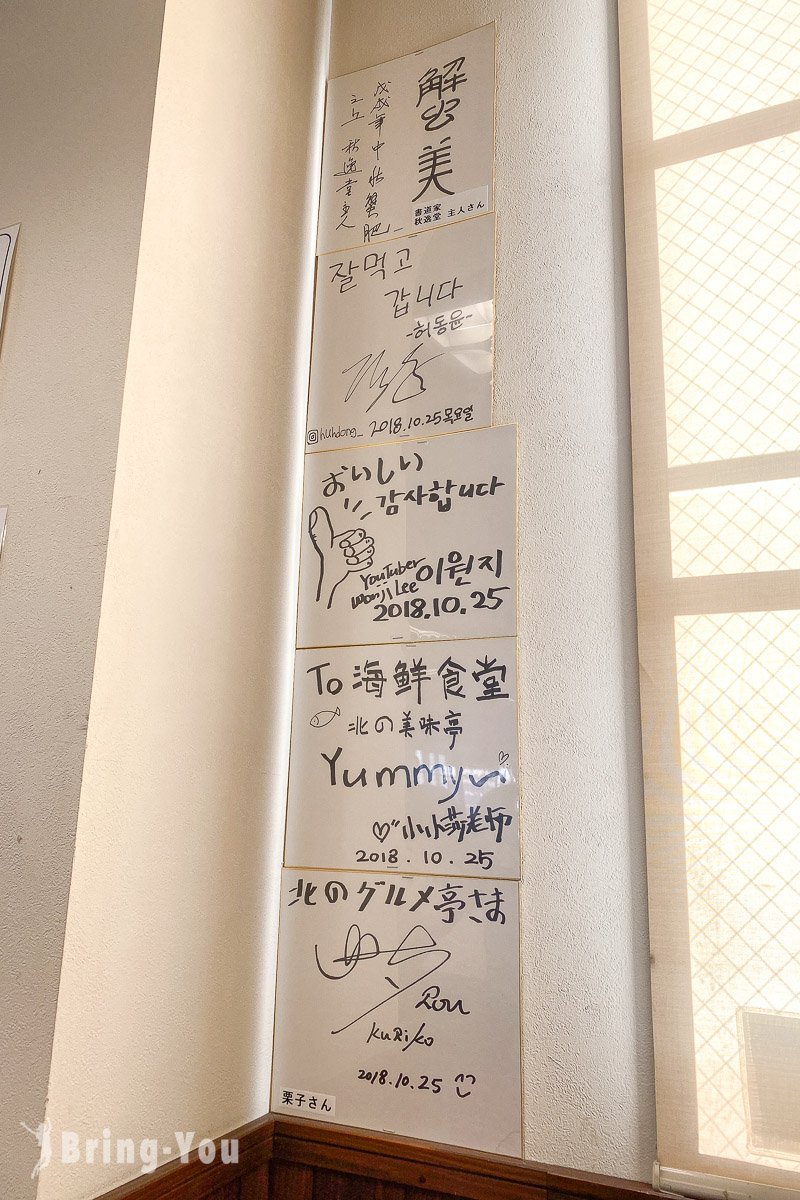 蟹美
戊戌年中秋蟹肥
書道家
秋逸堂 主人さん
잘먹고
갑니다
-허동윤-
huhdong_ 2018.10.25목요일
おいしい
감사합니다
YouTuber
Wonji Lee 이원지
2018.10.25
To 海鮮食堂
北の美味亭
Yummy
小小莎老師
2018.10.25
北のグルメ亭さま
Rou
KuRiko
2018.10.25
栗子さん
Bring-You